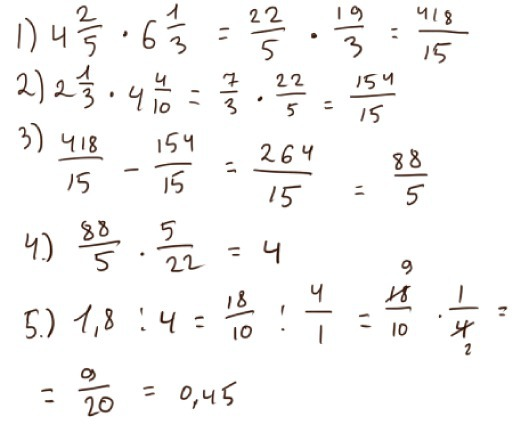 1) 4 2/5 · 6 1/3 = 22/5 · 19/3 = 418/15
2) 2 1/3 · 4 4/10 = 7/3 · 22/5 = 154/15
3) 418/15 - 154/15 = 264/15 = 88/5
4.) 88/5 · 5/22 = 4
5.) 1,8 : 4 = 18/10 : 4/1 = 18/10 · 1/4 =
9 2
= 9/20 = 0,45